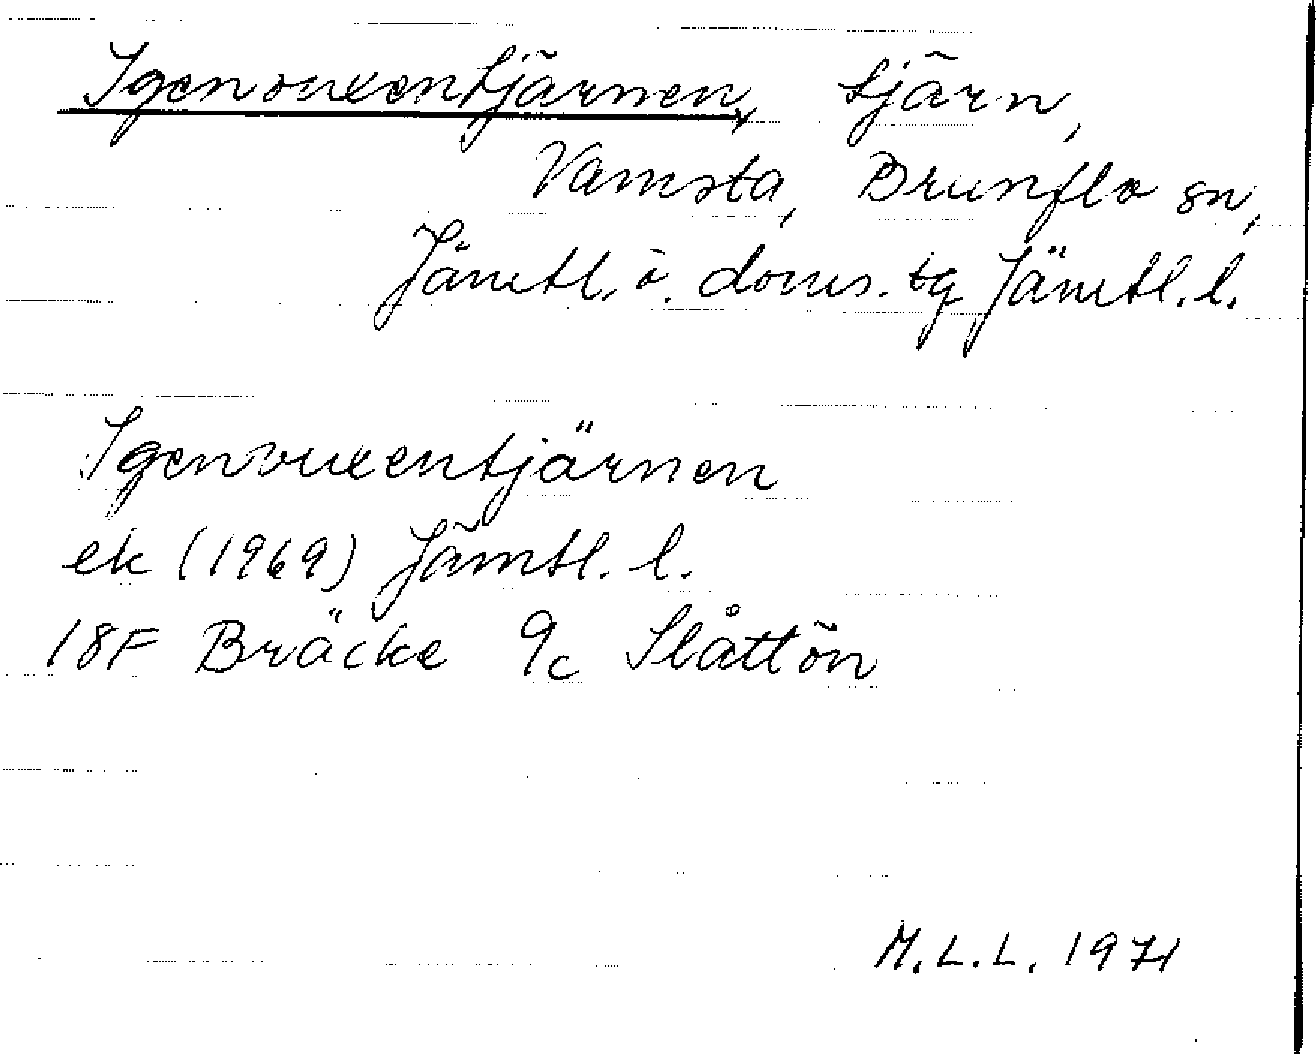 Igenvuxentjärnen, tjärn,
Vamsta, Brunflo sn,
Jämtl. ö. doms. tg Jämtl. l.
Igenvuxentjärnen
ek (1969) Jämtl. l.
18F Bräcke 9c Slåttön
M.L.L. 1971